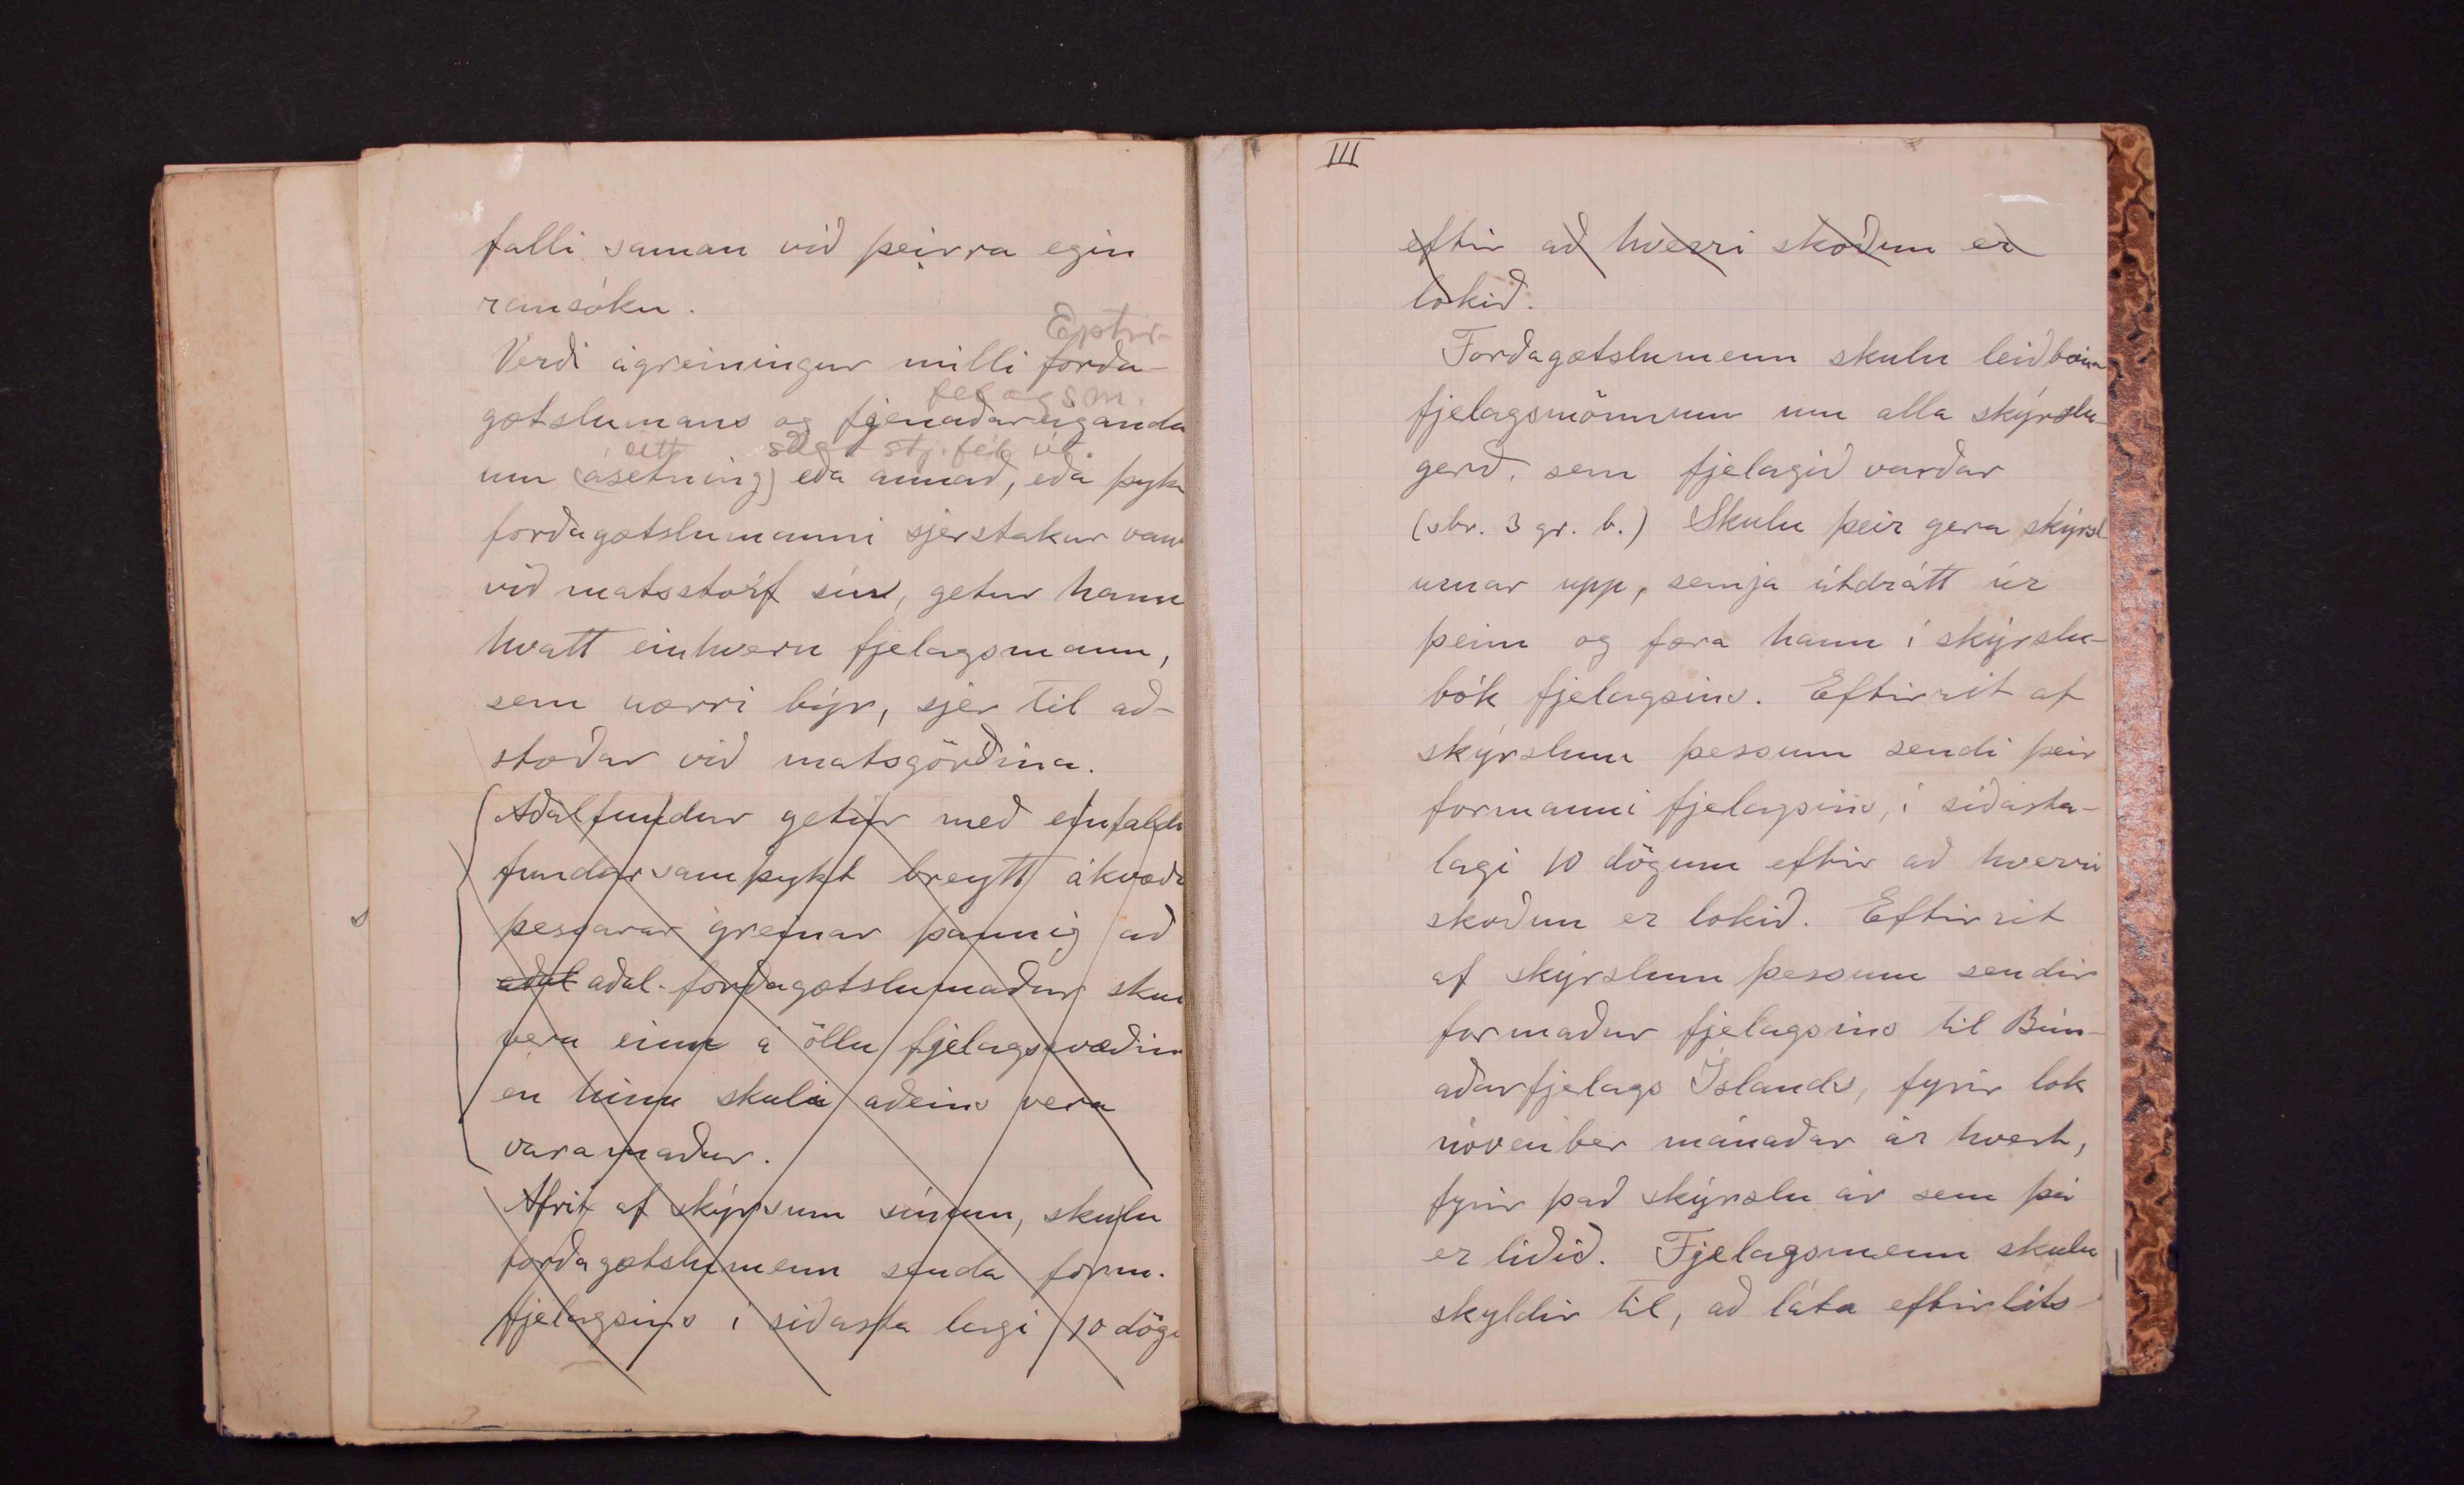 falli saman við þeirra egin
ransókn.
Eptir-
Verði ágreiningur milli forða-
felagsm.
gætslumans og fjenaðareiganda
um (ásetning) eða annað, eða þyki
forðagætslumanni sjerstakur van
við matsstörf sín, getur hann
hvatt einhvern fjelagsmann,
sem nærri býr, sjer til að-
stoðar við matsgörðina.
Aðalfundur getur með einfaldri
fundarsamþykt breytt ákvæði
þessarar greinar þannig að
aðal aðal-forðagætslumaður skuli
vera einn á öllu fjelagssvæðinu
en hinn skuli aðeins vera
varamaður.
Afrit af skýrsum sínum, skulu
forðagætslumenn senda form.
fjelagsins í síðasta lagi 10 dögu
III
eftir að hverri skoðun er
lokið.
Forðagætslumenn skulu leiðbeina
fjelagsmönnum um alla skýrslu-
gerð, sem fjelagið varðar
(sbr. 3 gr. b.) Skulu þeir gera skýrsl
urnar upp, semja útdrátt úr
þeim og færa hann í skýrslu-
bók fjelagsins. Eftirrit af
skýrslum þessum sendi þeir
formanni fjelagsins, í síðasta-
lagi 10 dögum eftir að hverri
skoðun er lokið. Eftirrit
af skýrslum þessum sendir
formaður fjelagsins til Bún-
aðarfjelags Íslands, fyrir lok
nóvember mánaðar ár hvert,
fyrir það skýrslu ár sem þá
er liðið. Fjelagsmenn skulu
skyldir til, að láta eftirlits-